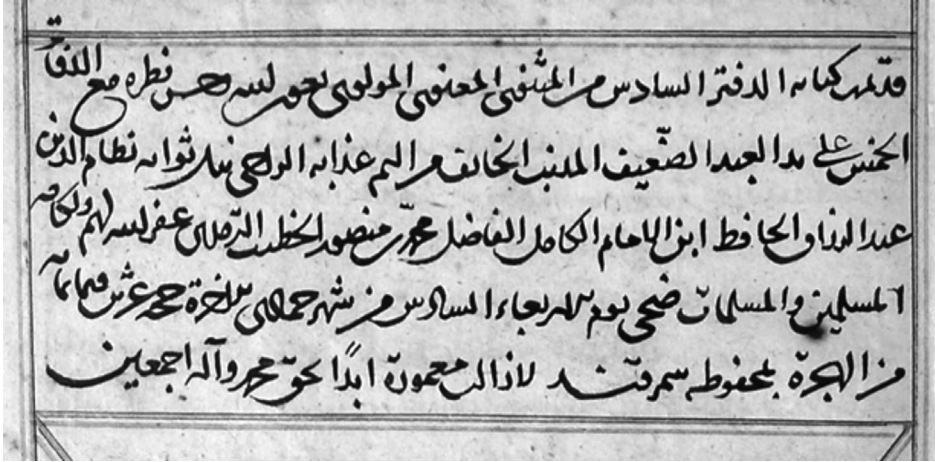 قد تمت كتابة الدفتر السادس من المثنوى المعنوى المولوى بعون الله وحسن نظره مع الدفاتر
الخمس على يد العبد الضعيف المذنب الخائف من اليم عذابه الراجى نيل ثوابه نظام الدين
عبد الرزاق الحافظ ابن الامام الكامل الفاضل محمد بن منصور الخطيب غفر الله لهم ولكافة
المسلمين والمسلمات ضحى يوم الاربعاء السادس من شهر جمادى الاخرة وثمانمائة
من الهجرة بمحفوظه سمرقند لا زالت معمورة ابدًا بحق محمد وآله اجمعين